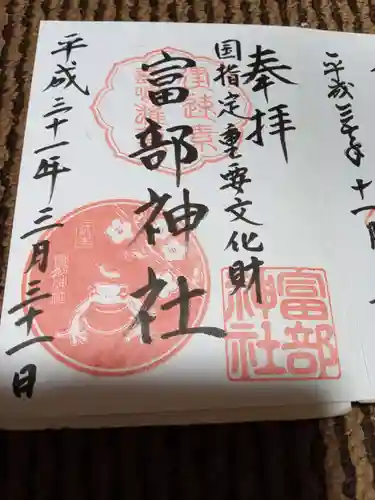 奉拝
国指定重要文化財
富部神社
平成三十一年三月三十一日
富部
神社
平成三十年十一